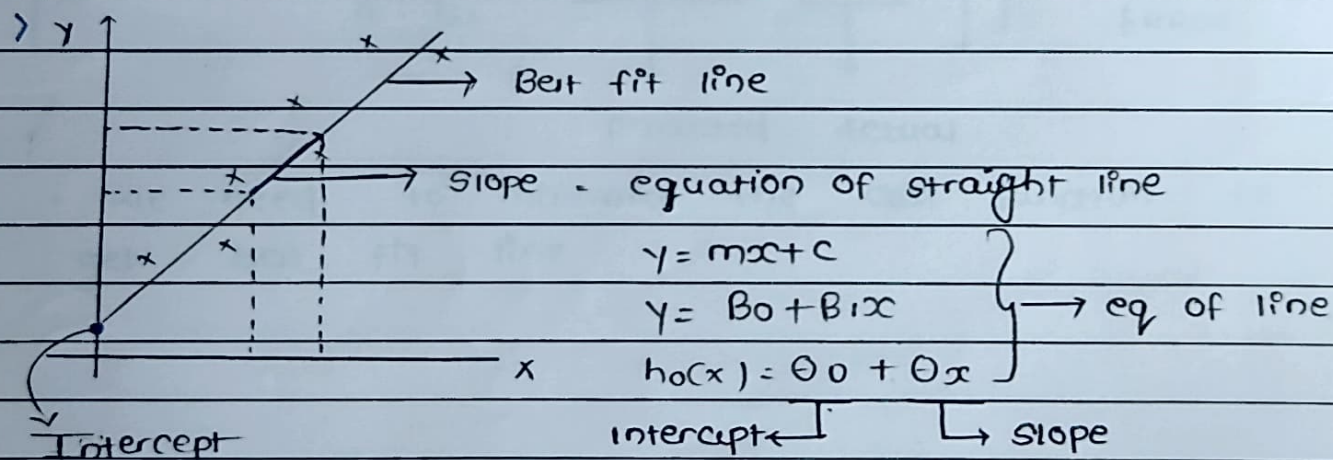 > Y
Best fit line
Slope - equation of straight line
y = mx + c
y = B0 + B1x
eq of line
x
h0(x) = θ0 + θx
Intercept
intercept
slope